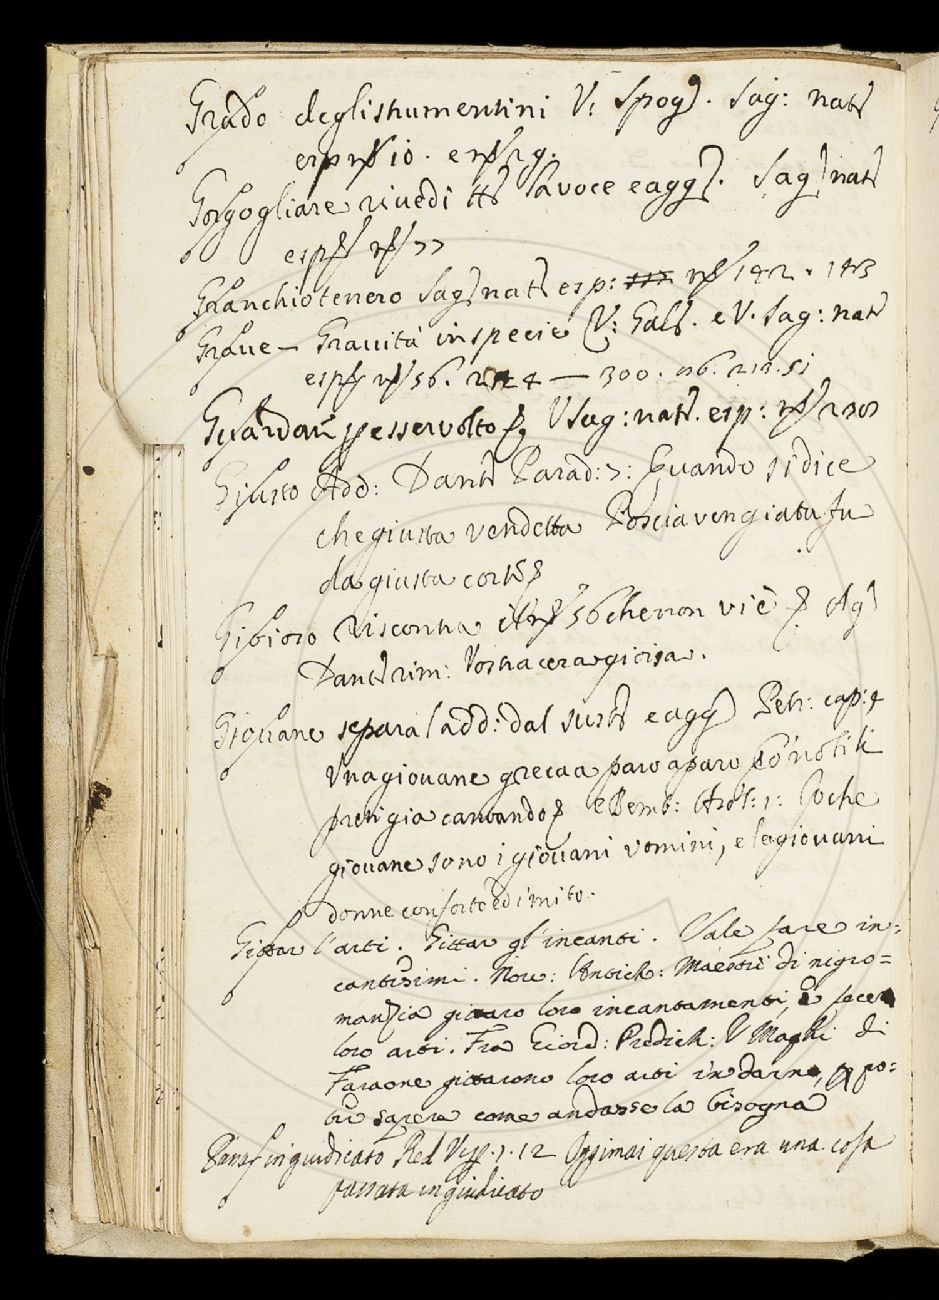 Grado deglistrumentini V: Spog. Sag: nat
esp 10. e 29.
Gorgogliare rivedi tt la voce e agg. Sag nat
esp 77
Granchiotenero Sag nat esp: 142. 143
Grave — Gravità in specie V: Gall. e V. Sag: nat
esp 56. — 300. 51
Guardar esservolto V Sag: nat. esp:
Giusto Add: Dant Parad: 7: Quando si dice
che giusta vendetta Poscia vengiata fu
da giusta corte
Gioioso riscontra 56 che non vi è Ag
Dant rim: Vostra cera gioiosa.
Giovane separa l add: dal sust e agg Petr: cap: 4
Una giovane greca a paro a paro Co nobili
cantando e Bemb: 1: che
giovane sono i giovani uomini, e le giovani
donne di mito.
Gittar l'arti. Gittar gl'incanti. Vale fare in=
cantesimi. Nov: Antich: Maestri di nigro=
manzia gittaro loro incantamenti, e fecer
loro arti. Fra Giord: Predich: Maghi di
Faraone gittarono loro arti indarno, po=
ter sapere come andasse la bisogna
in giudicato Red 1. 12 Oggimai questa era una cosa
passata in giudicato